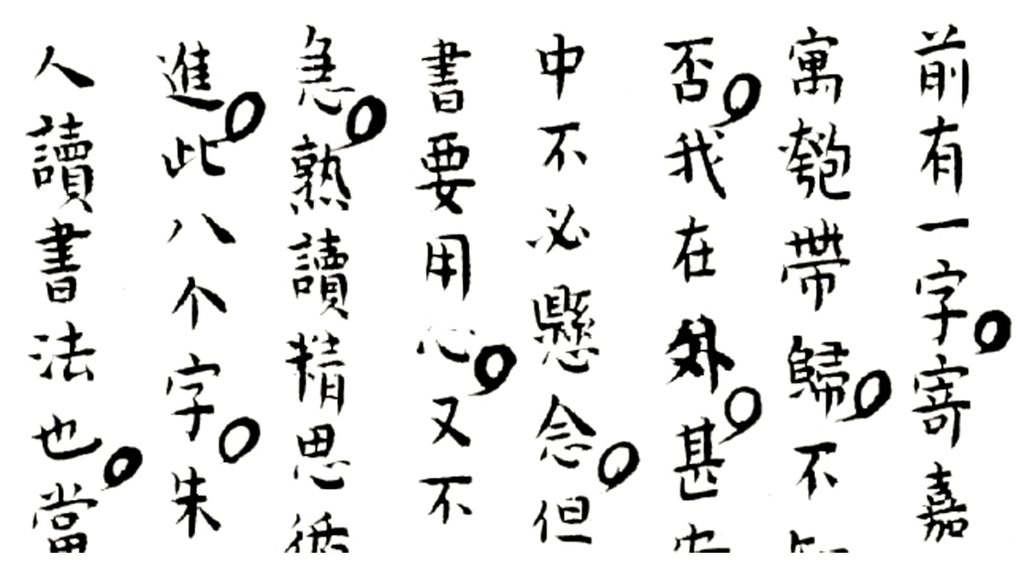 前有一字寄嘉
寓匏帶歸不
否我在外甚
中不必懸念但
書要用心又不
急熟讀精思循
進此八个字朱
人讀書法也當